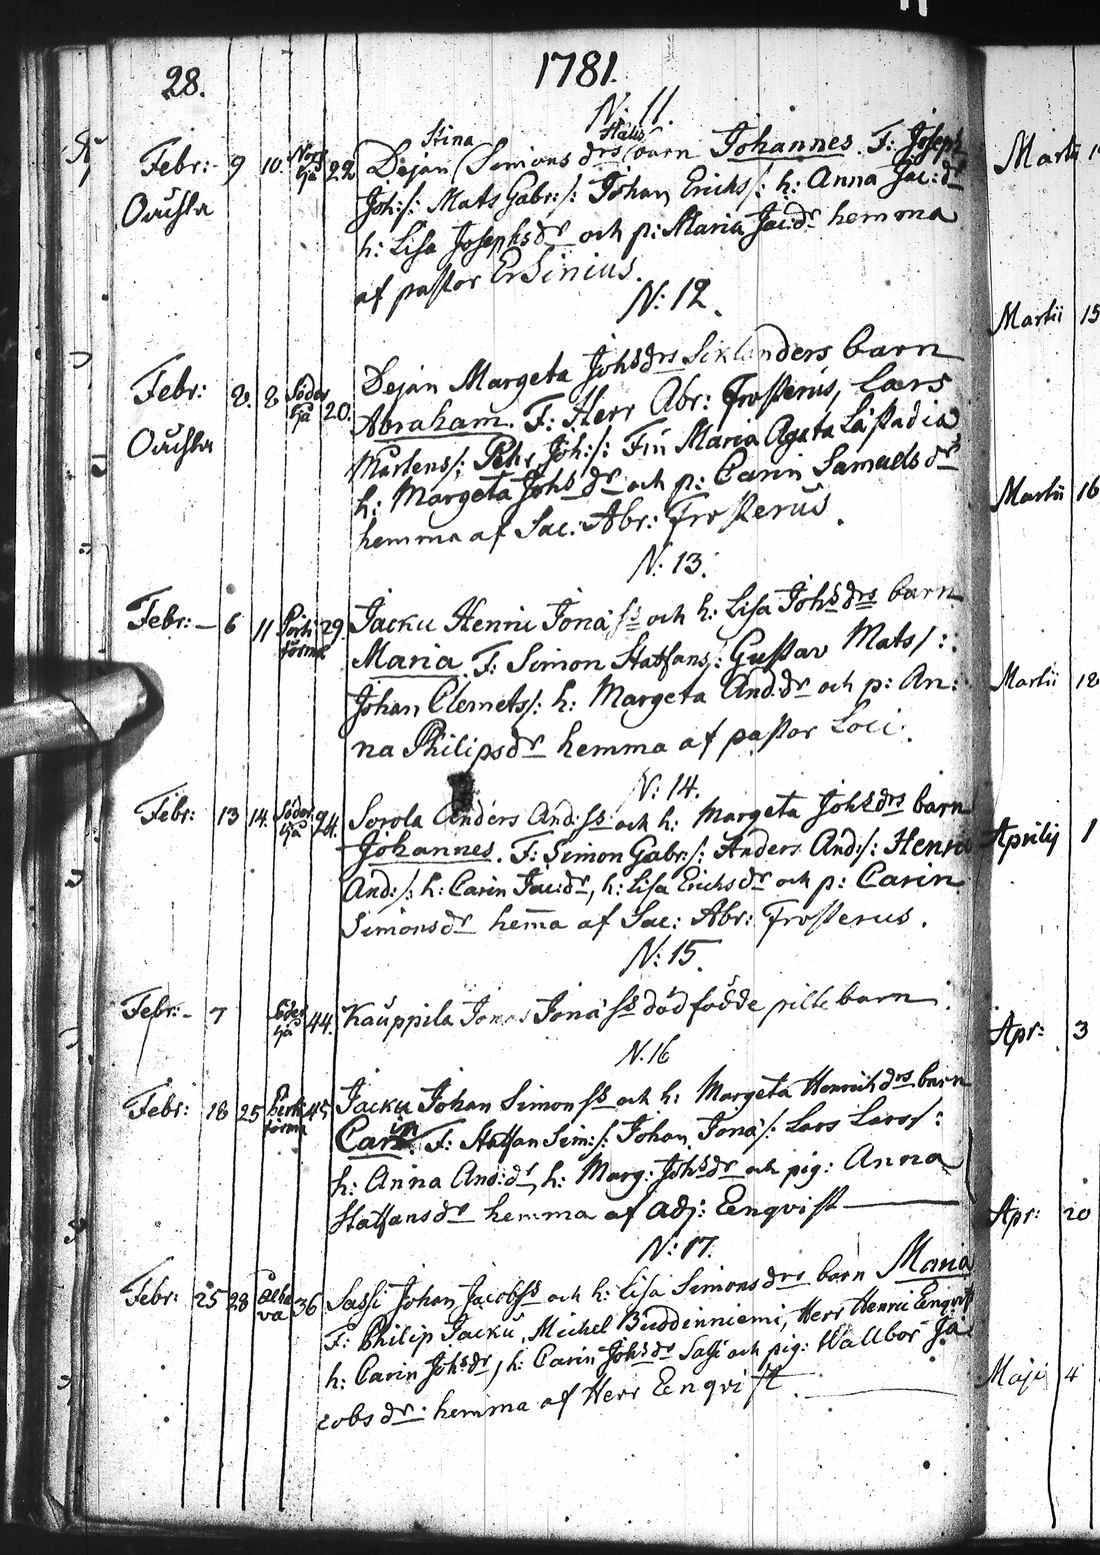 28.
1781.
N: 11.
Stina Ståls
Febr:- 9 10. Norr 22 Dejan Simons drs barn Johannes. F: Joseph
Ouchta Joh:/: Mats Gabr:/: Johan Erichs/: h: Anna Jac:dr
h: Lisa Josephsdr och p: Maria Jac:dr hemma
af pastor Ersinius.
N: 12.
Febr: 2. 2 Söder 20. Dejan Margeta Johsdrs barn
Ouchta Abraham. F: Herr Abr: Frosterus, Lars
Mårtens/: Pehr Joh:/: Fru Maria Agata Læstadia
h: Margeta Johs dr och p: Carin Samuels dr
hemma af Sac: Abr: Frosterus.
N: 13.
Febr:- 6 11 29. Jacku Henric Jona ss och h: Lisa Johs drs barn
Maria. F: Simon Staffans/: Gustav Mats/:
Johan Clemets/: h: Margeta And:dr och p: An:
na Philipsdr hemma af pastor Loci.
N: 14.
Febr: 13 14. Söder 24. Sorola Anders And:ss och h: Margeta Johs drs barn
Johannes. F: Simon Gabr:/: Anders And:/: Henric
And:/: h: Carin Jac:dr, h: Lisa Erichs dr och p: Carin
Simonsdr hem̄a af Sac: Abr: Frosterus.
N: 15.
Febr:- 7 Söder 44. Kauppila Jonas Jona ss dödfödde piltebarn
N. 16
Febr: 18 25 45 Jacku Johan Simon ss och h: Margeta Henrich drs barn
Carin. F: Staffan Sim:/: Johan Jona/: Lars Lars/:
h: Anna And:dr, h: Marg: Johs dr och pig: Anna
Staffansdr hemma af adj: Eenqvist
N: 17.
Febr: 25 28 36 Sassi Johan Jacobss och h: Lisa Simonsdrs barn Maria
F: Philip Jacku, Michel Buddinniemi, Herr Henric Enqvist
h: Carin Johs dr, h: Carin Johs dr Sassi och pig: Wallbor Ja:
cobs dr. hemma af Herr Eenqvist.
Martii
Martii 15
Martii 16
Martii 12
Aprilij 1
Apr: 3
Apr: 20
Maji 4